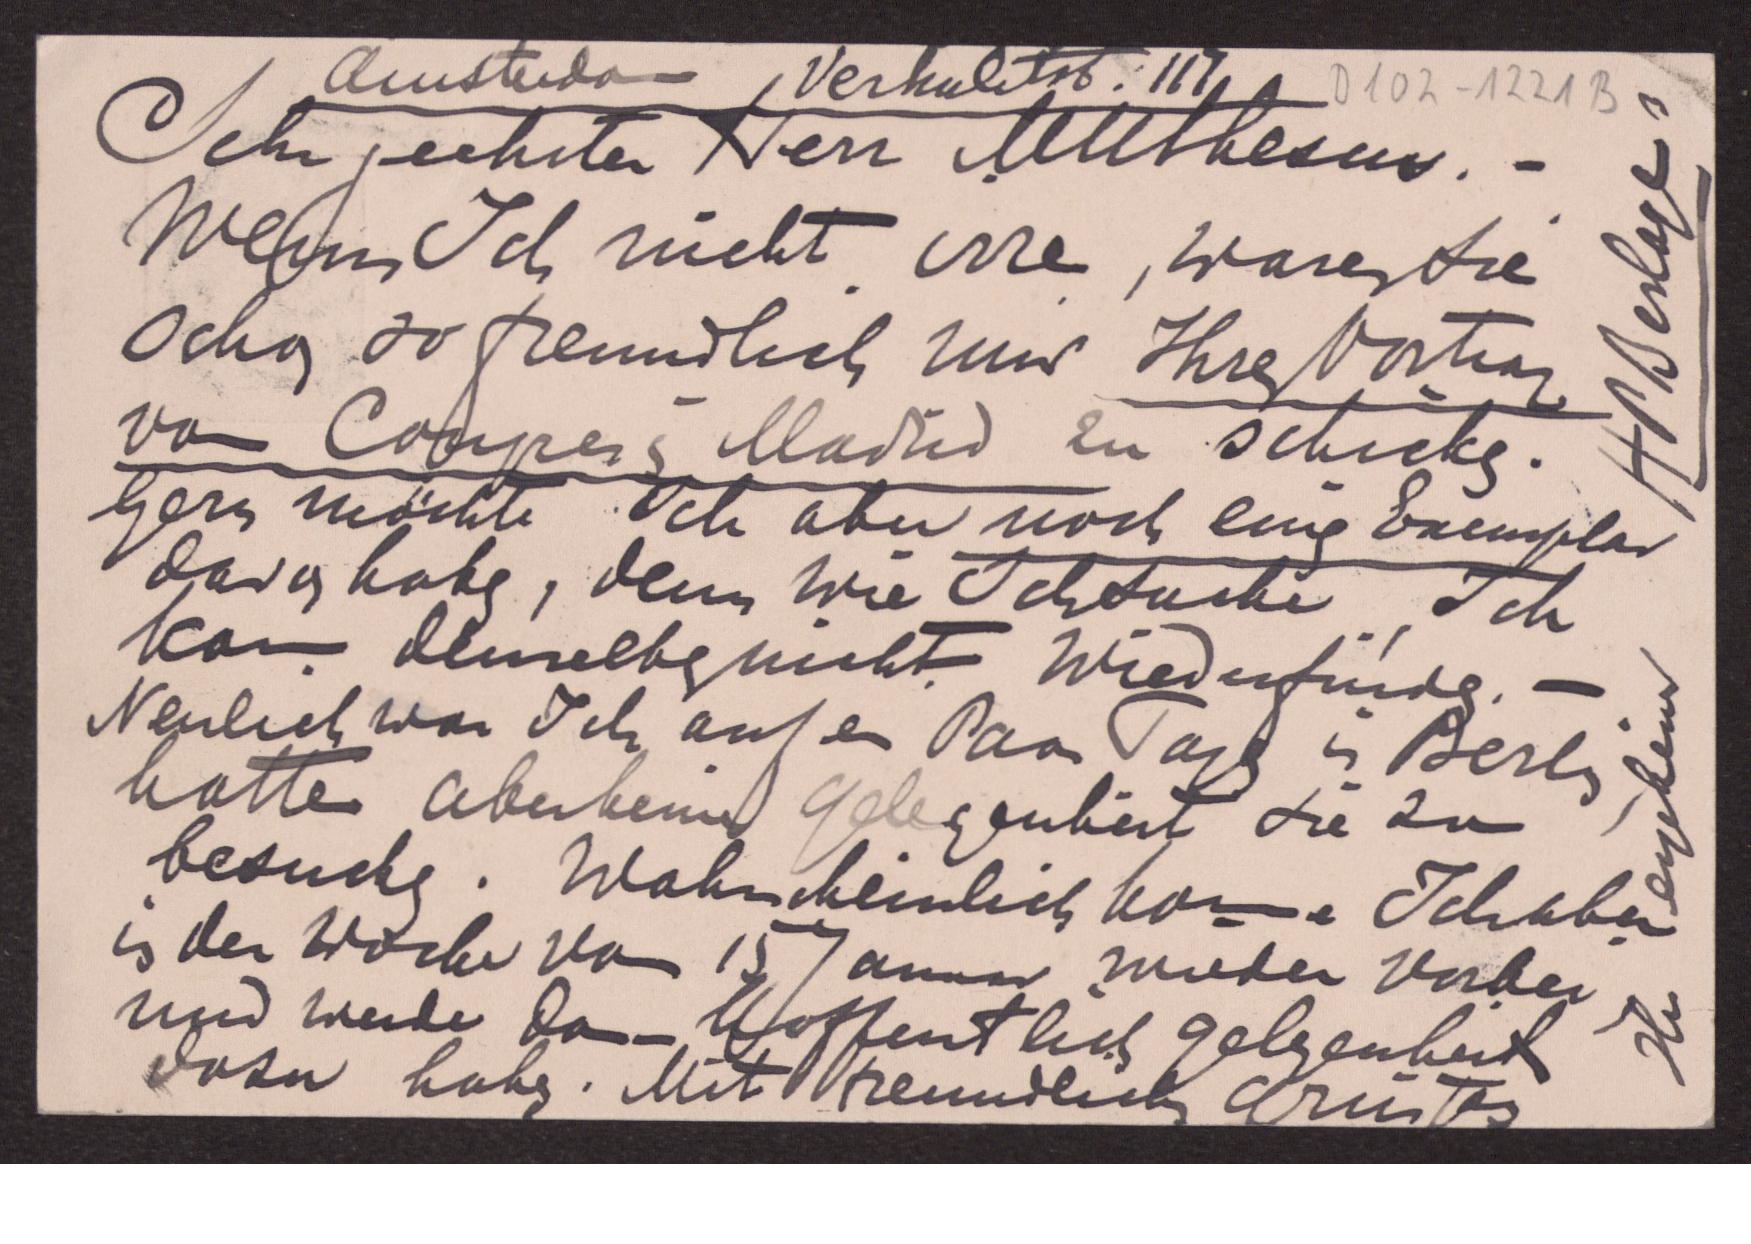 Amsterdam, Verhulststr. 117.
D102-1221B
Sehr geehrter Herr Muthesius. -
Wenn Ich nicht irre, waren Sie
schon so freundlich mir Ihren Vortrag
vom Congress Madrid zu schicken.
Gern möchte Ich aber noch ein Exemplar
davon haben, denn wie Ich suche, Ich
kann denselben nicht wiederfinden. -
Neulich war Ich auf ein Paar Tage in Berlin,
hatte aber keine gelegenheit Sie zu
besuchen. Wahrscheinlich komme Ich aber
in der Woche von 15 Januar wieder vorbei
und werde dann hoffentlich gelegenheit
dazu haben. Mit freundlichen Grüssen
Ihr ergebener
HP Berlage